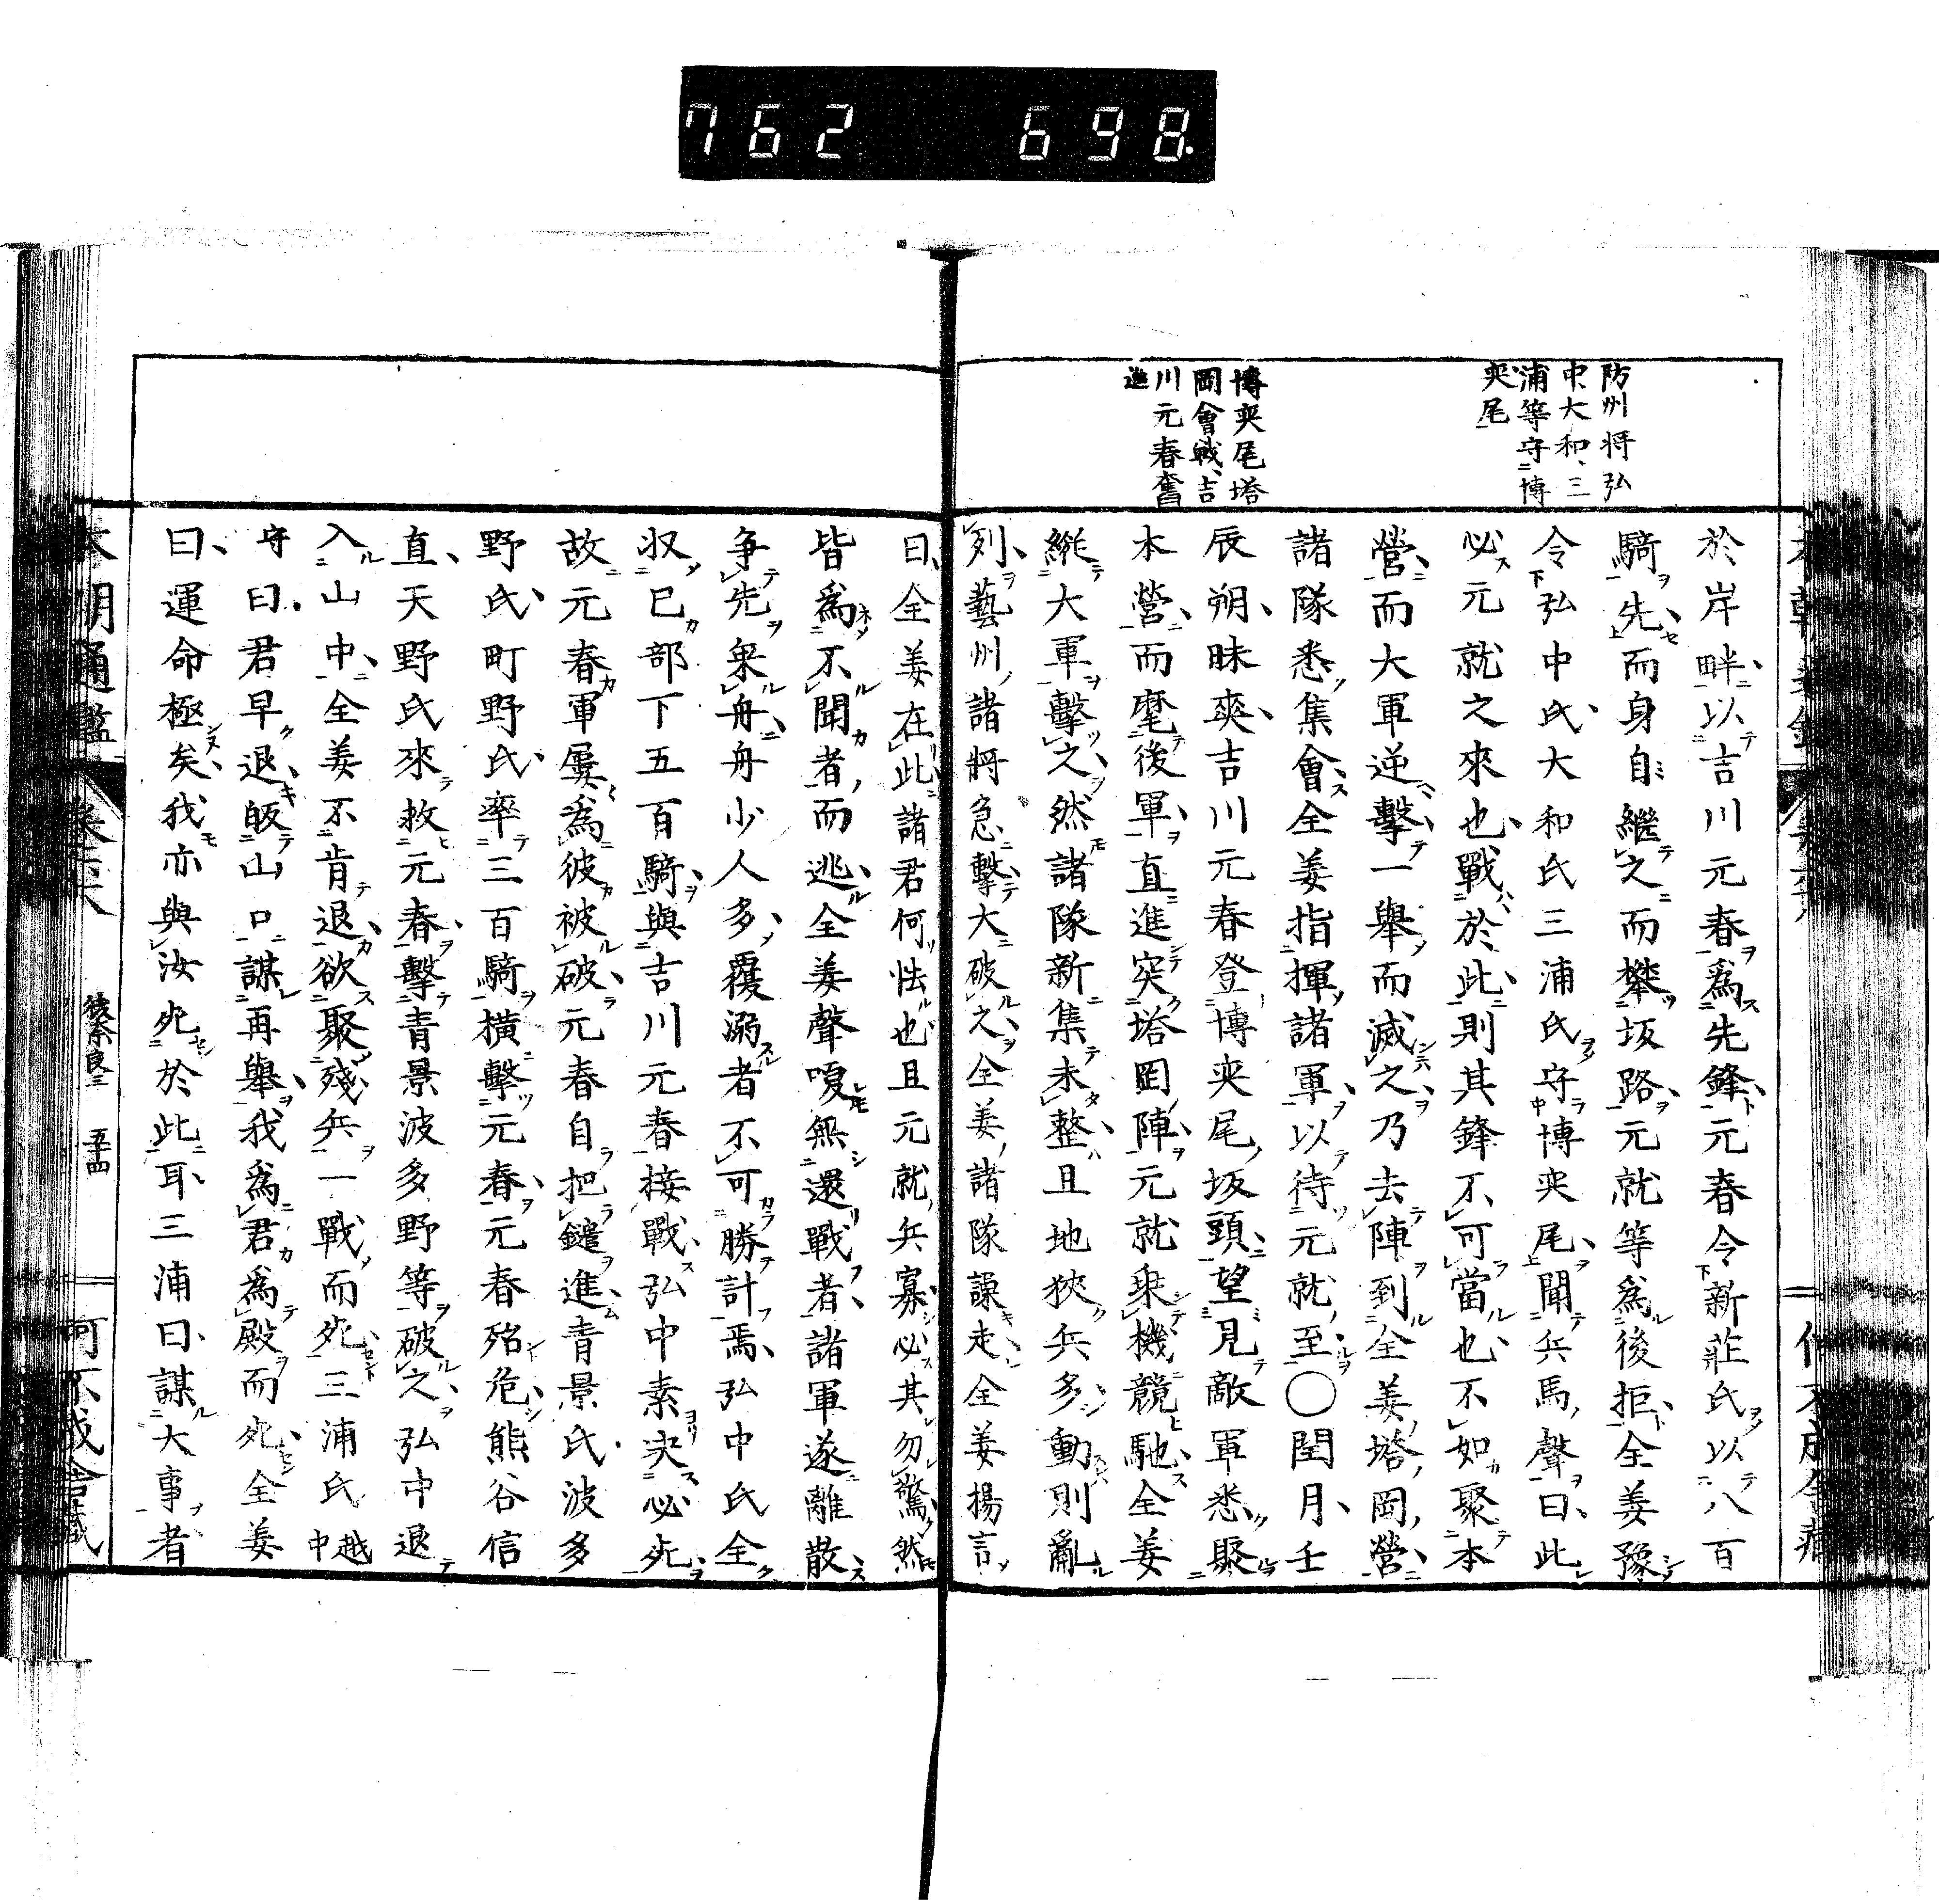 762 698.
防州将弘
中、大和、三
浦等守博
奕尾
博奕尾塔
岡會戰、吉
川元春奮
進
於岸畔、以吉川元春爲先鋒、元春令新莊氏以八百
騎先、而身自繼之而攀坂路、元就等爲後拒、全姜豫
令弘中氏、大和氏三浦氏守博奕尾、聞兵馬聲曰、此
必元就之來也、戰於此則其鋒不可當也、不如聚本
營、而大軍逆擊一舉而滅之、乃去陣到全姜塔岡營、
諸隊悉集會、全姜指揮諸軍、以待元就至〇閏月、壬
辰朔、昧爽、吉川元春登博奕尾坂頭、望見敵軍悉聚
本營、而麾後軍、直進突塔岡陣、元就乗機競馳、全姜
縦大軍擊之、然諸隊新集未整、且地狹兵多、動則亂
列、藝州諸将急擊大破之、全姜諸隊譟走、全姜揚言
曰、全姜在此、諸君何怯也且元就兵寡、必其勿驚然
皆爲不聞者、而逃、全姜聲嗄無還戰者、諸軍遂離散
争先乗舟、舟小人多、覆溺者不可勝計焉、弘中氏全
収已部下五百騎、與吉川元春接戰、弘中素決必死、
故元春軍屡爲彼被破、元春自把鑓進、青景氏、波多
野氏、町野氏、率三百騎横擊元春、元春殆危、熊谷信
直、天野氏來救元春、擊青景波多野等破之、弘中退
入山中、全姜不肯退、欲聚殘兵一戰而死、三浦氏越中
守曰、君早退皈山口謀再舉、我爲君爲殿而死、全姜
曰、運命極矣、我亦與汝死於此耳、三浦曰、謀大事者
本朝通鑑
後奈良三
五十四